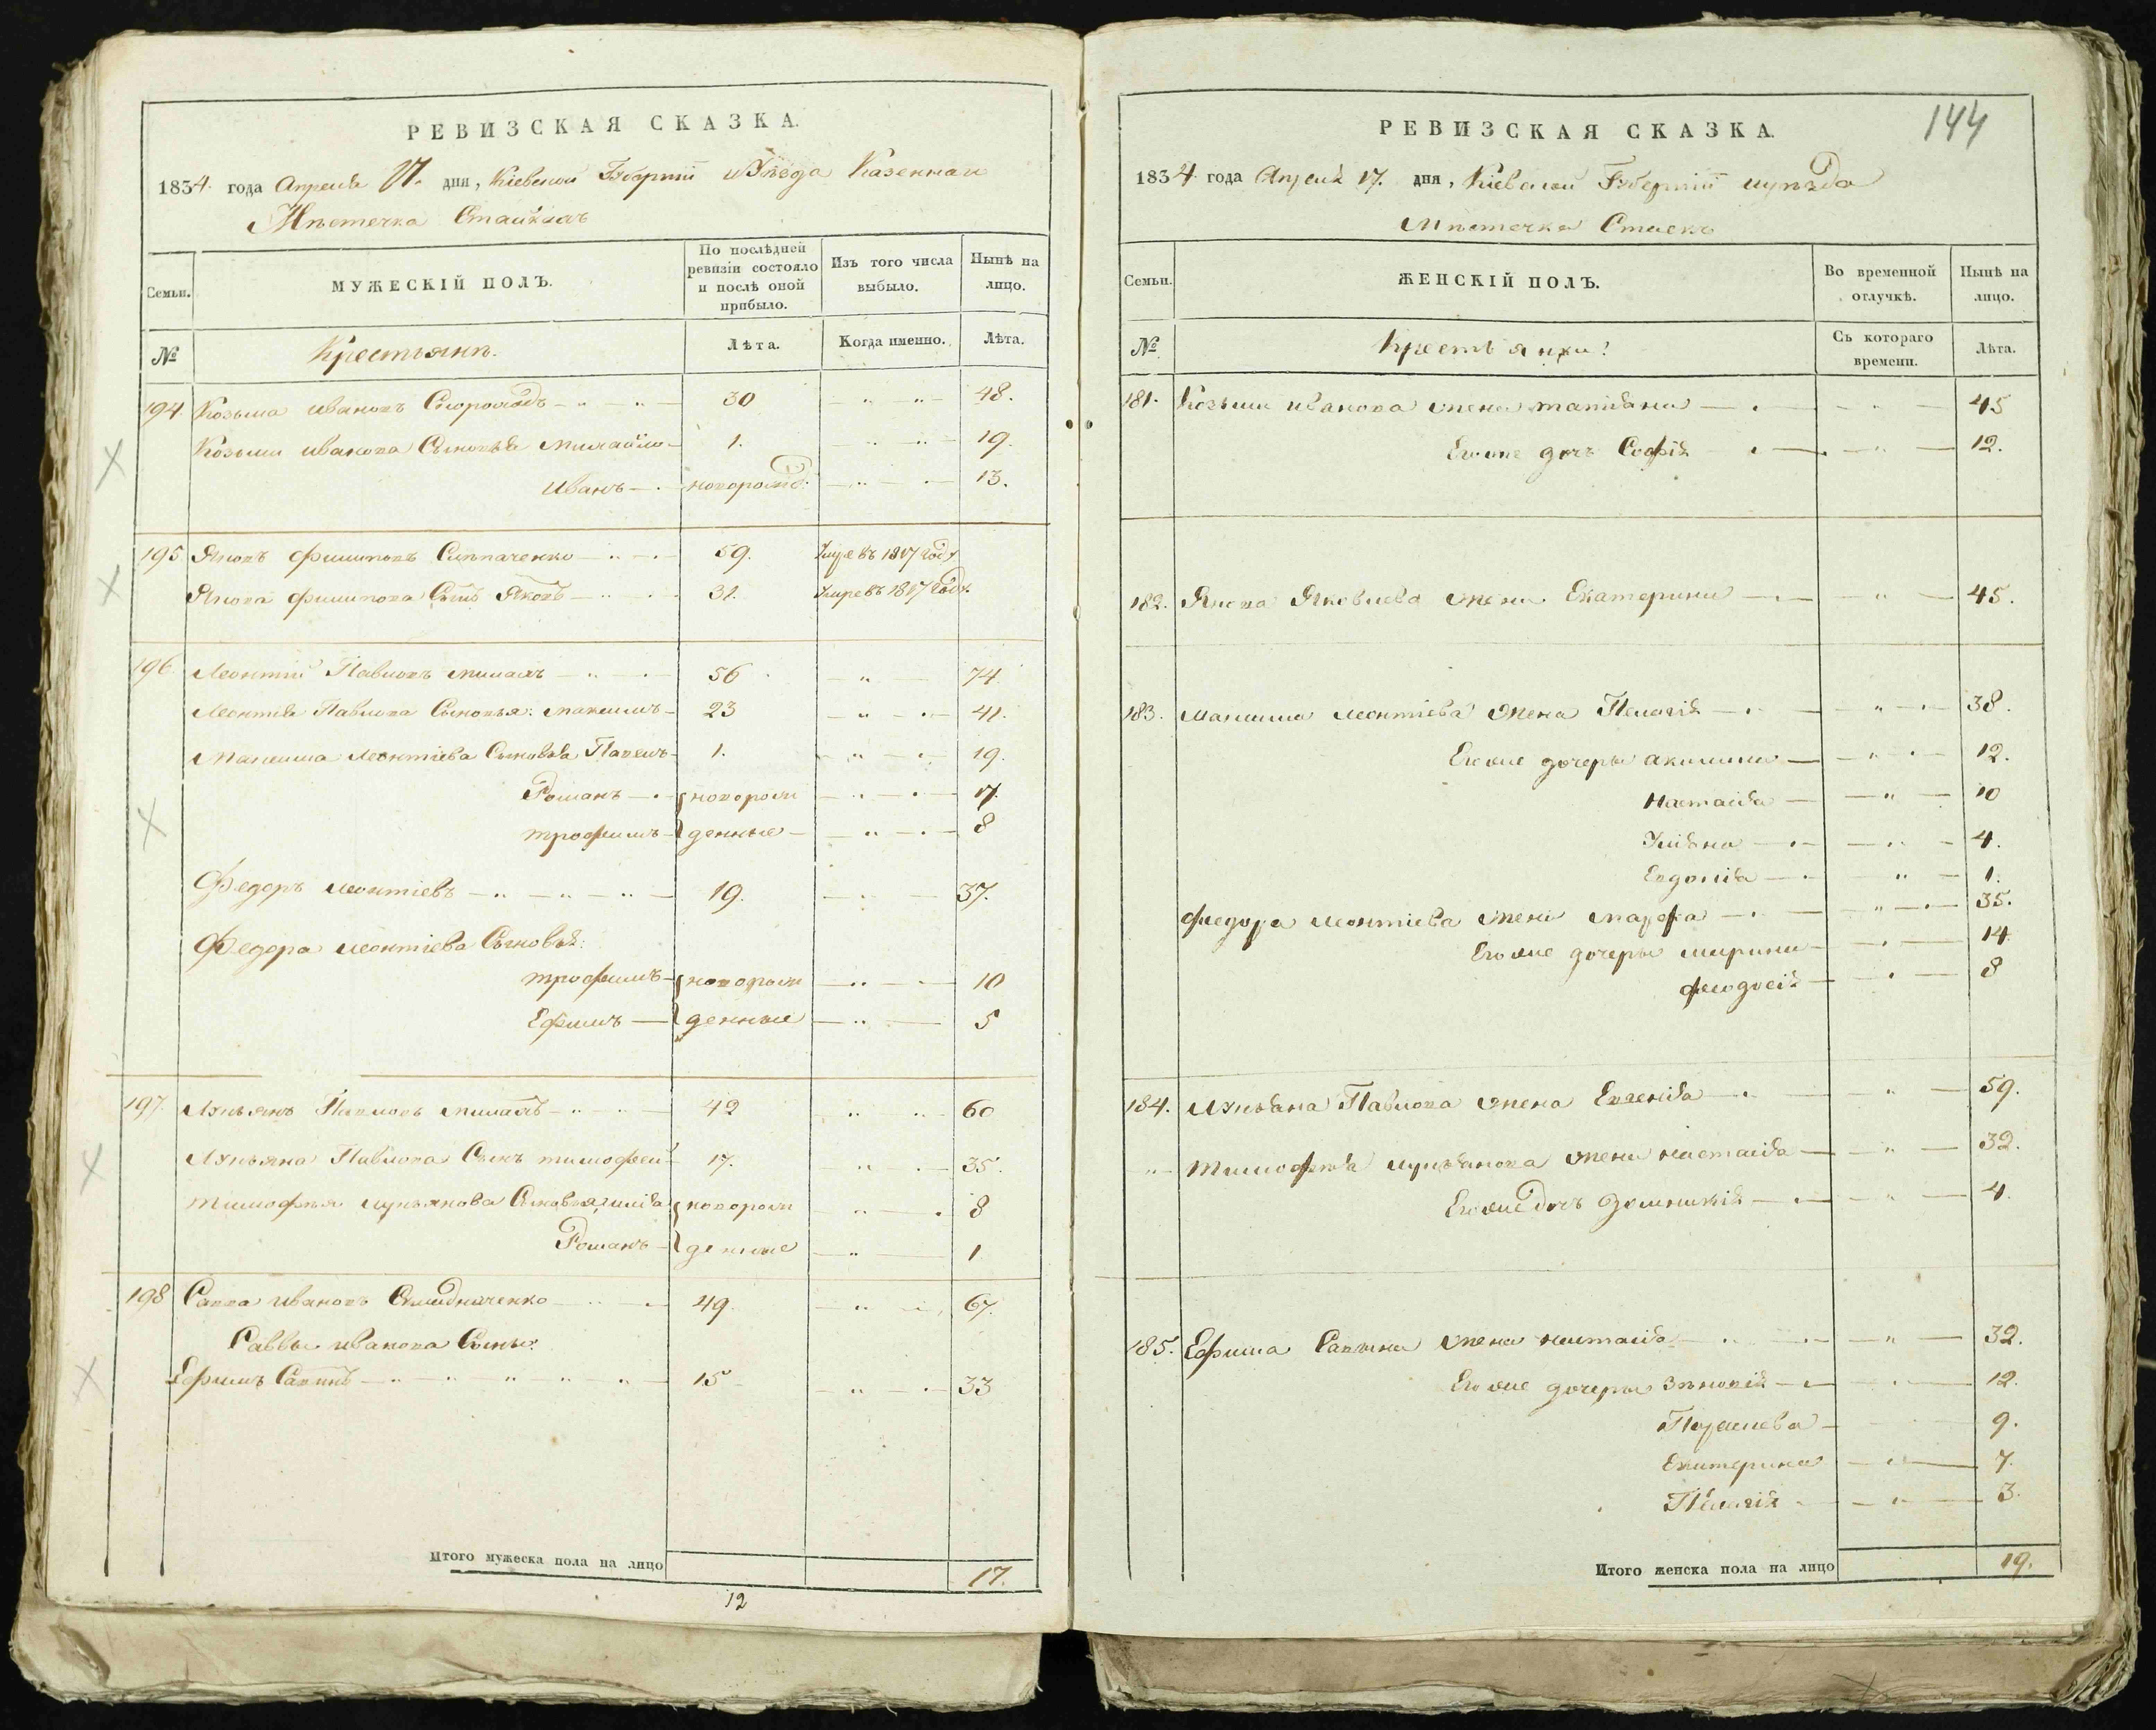 РЕВИЗСКАЯ СКАЗКА.
1834. года Апреля 17. дня, Кіевской Губерніи и Уѣзда Казеннаго
Мѣстечка Стайковъ
Семьи.
МУЖЕСКІЙ ПОЛЪ.
По послѣдней ревизіи состояло и послѣ оной прибыло.
Изъ того числа выбыло.
Нынѣ на лицо.
№
Крестьяне.
Лѣта.
Когда именно.
Лѣта.
194 Козьма Ивановъ 30 48.
Козьмы Иванова Сыновья Михайло 1. 19.
Иванъ новорожд: 13.
195 Яковъ Филиповъ 59. Умре въ 1817 году
Якова Филипова Сынъ Яковъ 31. Умре въ 1817 году
196 Леонтій Павловъ 56 74.
Леонтія Павлова Сыновья: Максимъ 23 41.
Максима Леонтіева Сыновья Павелъ 1. 19.
Романъ новорож 17.
Трофимъ денные 8
Федоръ Леонтіевъ 19. 37.
Федора Леонтіева Сыновья:
Трофимъ новорож 10
Ефимъ денные 5
197. Лукьянъ Павловъ 42 60
Лукьяна Павлова Сынъ Тимофей 17. 35.
Тимофея Лукьянова Сыновья: Илія новорож 8
Романъ денные 1
198 Савва Ивановъ 49. 67.
Саввы Иванова Сынъ:
Ефимъ Савинъ 15 33
Итого мужеска пола на лицо 17.
12
144
РЕВИЗСКАЯ СКАЗКА.
1834 года Апреля 17. дня, Кіевской Губерніи и уѣзда
Мѣстечка Стаекъ
Семьи.
ЖЕНСКІЙ ПОЛЪ.
Во временной отлучкѣ.
Нынѣ на лицо.
№
Крестьянки:
Съ котораго времени.
Лѣта.
181. Козьмы Иванова жена Татіяна 45
Его же дочь Софія 12.
182. Якова Яковлева жена Екатерина 45.
183. Максима Леонтіева жена Пелагія 38.
Его же дочеры Акилина 12.
Настасія 10
Уліяна 4.
Евдокія 1.
Федора Леонтіева жена Марфа 35.
Его же дочеры Марина 14
Феодосія 8
184. Лукьяна Павлова жена Евгенія 59.
Тимофея Лукьянова жена Настасія 32.
Его же дочь Домникія 4.
185. Ефима Савина жена Настасія 32.
Его же дочеры Зѣновія 12.
Параскева 9.
Екатерина 7.
Пелагія 3.
Итого женска пола на лицо 19.